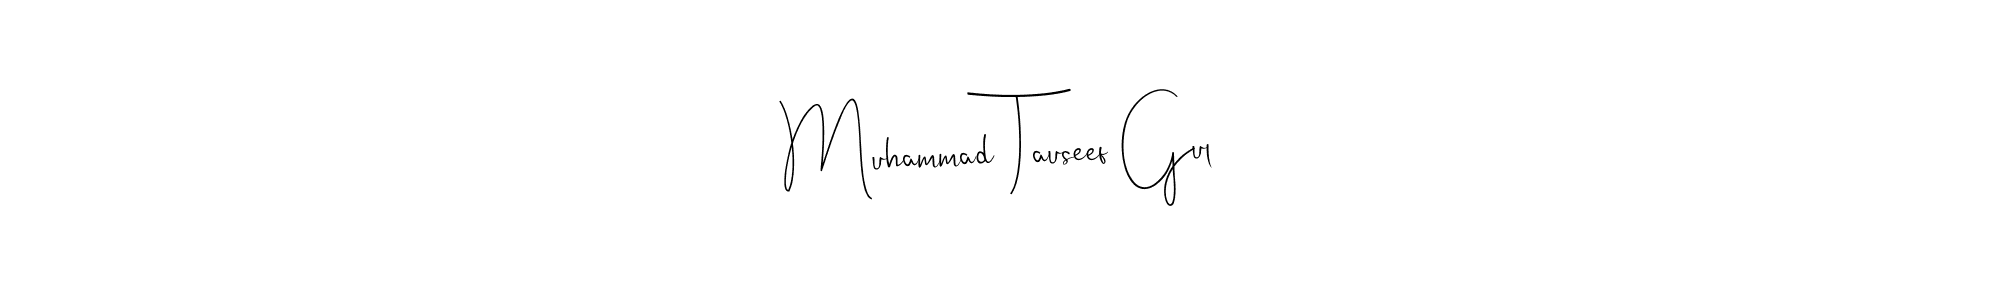 Muhammad Tauseef Gul